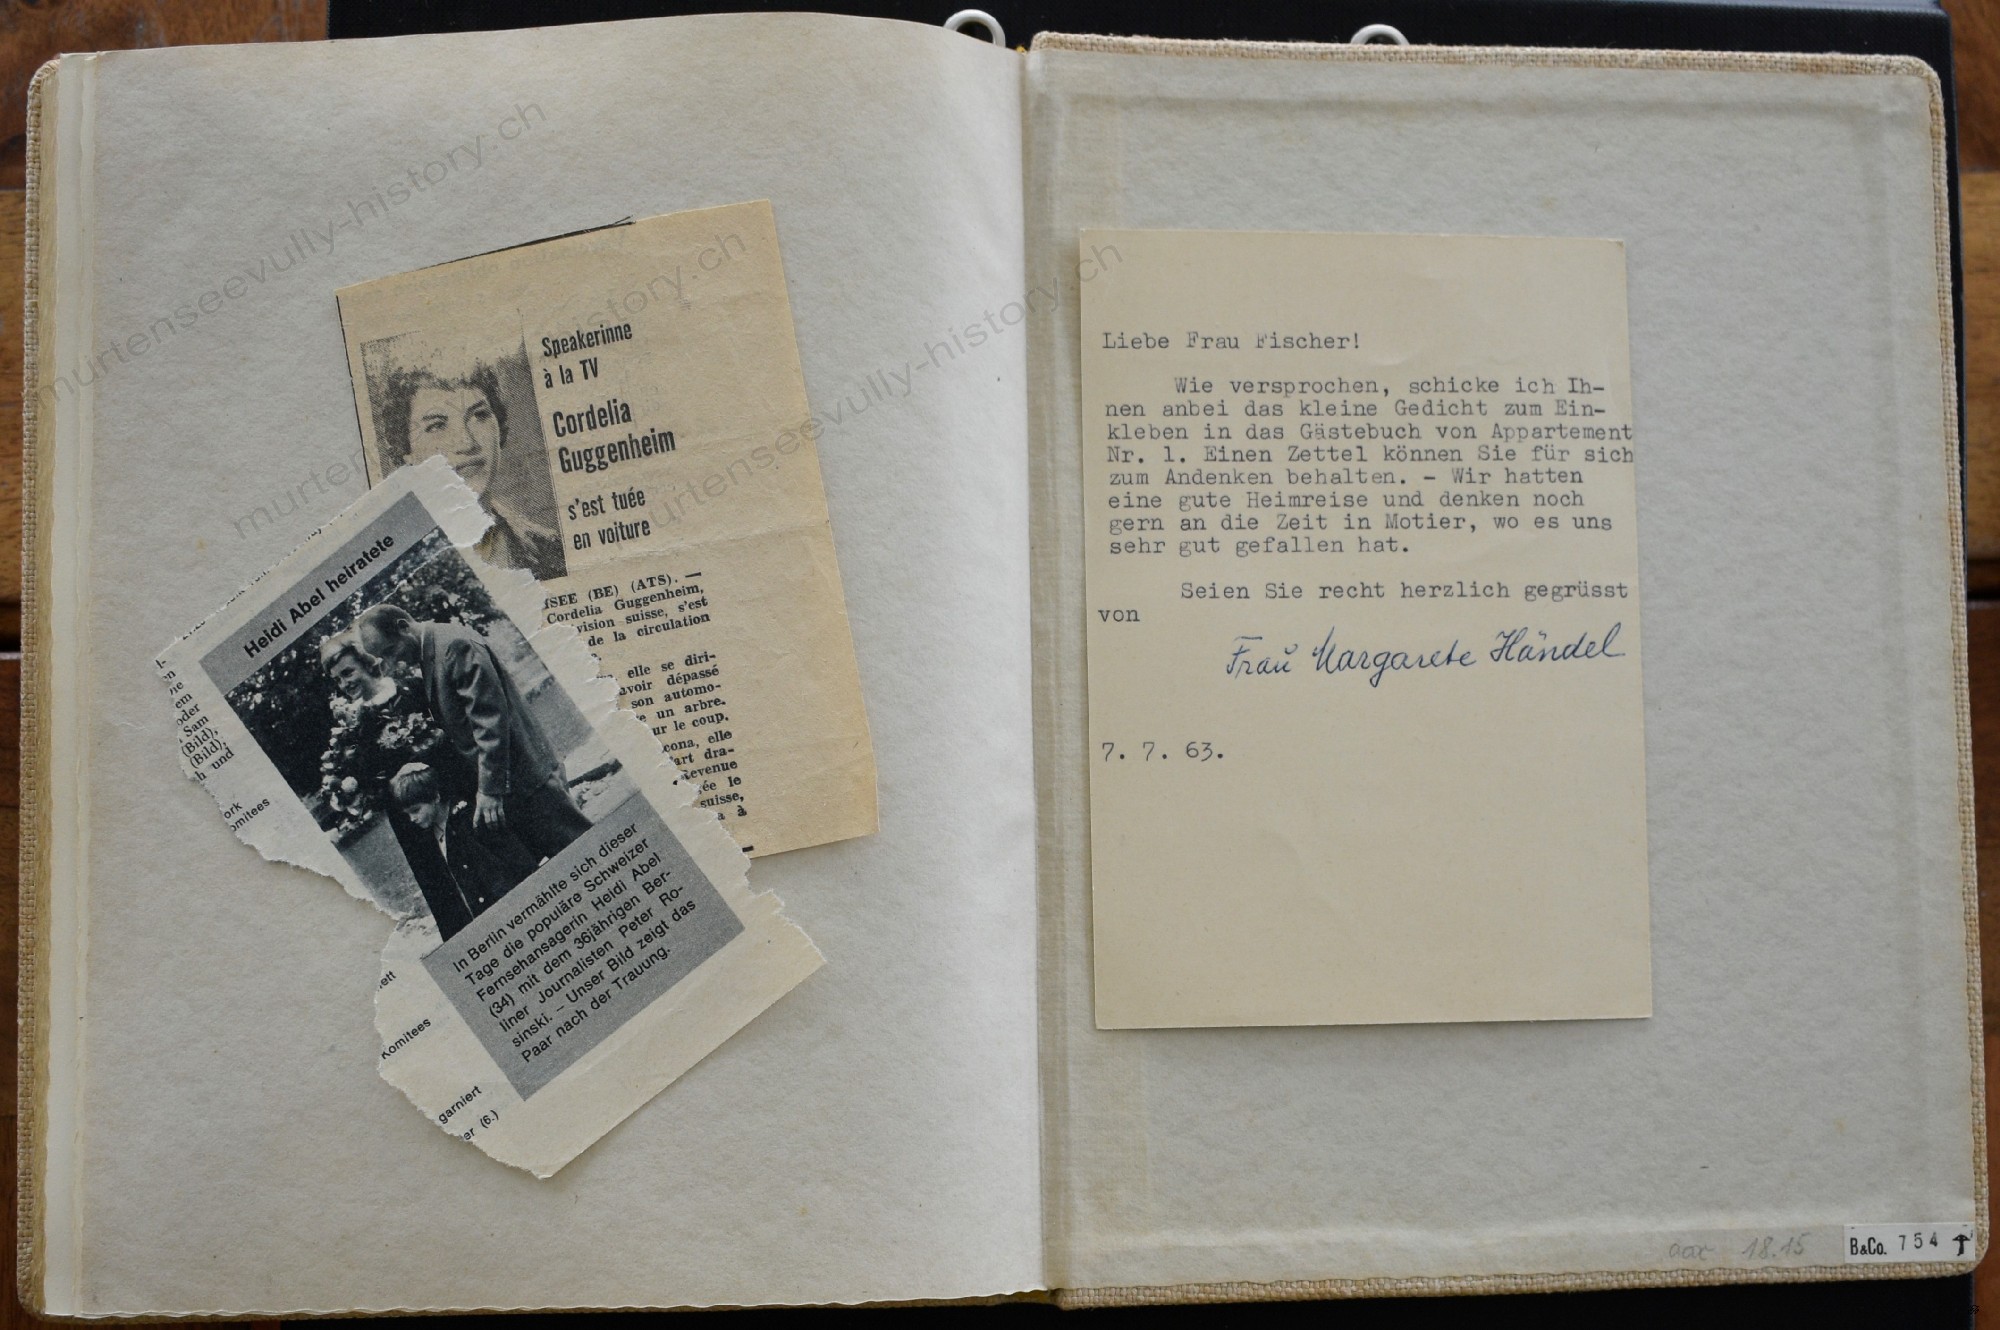 Speakerinne
à la TV
Cordelia
Guggenheim
s'est tuée
en voiture
ISEE (BE) (ATS). —
Cordelia Guggenheim,
vision suisse, s'est
de la circulation
elle se diri-
avoir dépassé
son automo-
un arbre.
ur le coup.
cona, elle
art dra-
Revenue
ée le
suisse,
à
Heidi Abel heiratete
In Berlin vermählte sich dieser
Tage die populäre Schweizer
Fernsehansagerin Heidi Abel
(34) mit dem 36jährigen Ber-
liner Journalisten Peter Ro-
sinski. – Unser Bild zeigt das
Paar nach der Trauung.
em
oder
Sam
(Bild),
(Bild),
h und
ork
omitees
ett
Komitees
garniert
er (6.)
Liebe Frau Fischer!
Wie versprochen, schicke ich Ih-
nen anbei das kleine Gedicht zum Ein-
kleben in das Gästebuch von Appartement
Nr. 1. Einen Zettel können Sie für sich
zum Andenken behalten. - Wir hatten
eine gute Heimreise und denken noch
gern an die Zeit in Motier, wo es uns
sehr gut gefallen hat.
Seien Sie recht herzlich gegrüsst
von
Frau Margarete Händel
7. 7. 63.
18.15
B&Co. 754
murtenseevully-history.ch
murtenseevully-history.ch
murtenseevully-history.ch